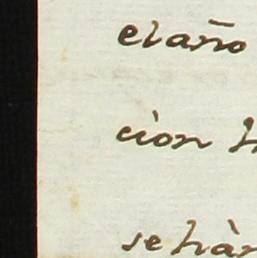 el año
cion
se hàn